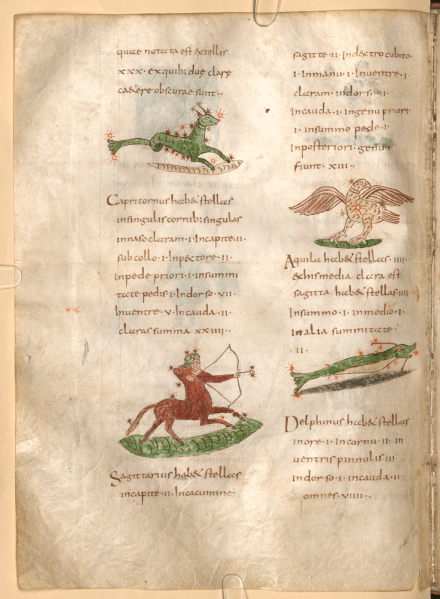 quae notata est & stellis
xxx · ex quib; duę clarę
caeterę obscurae sunt ·
Capricornus hab& stellas
in singulis cornib; singulas
in naso claram · i · In capite · ii ·
sub collo · i · In pectore · ii ·
In pede priori · i · in summi
tate pedis · i · In dorso · vii ·
In uentre · v · In cauda · ii ·
claras summa xxiiii ·
Sagittarius hab& stellas
in capite · ii · In cacumine
sagitte · ii · In dextro cubito ·
i · In manu · i · In uentre · i
claram · in dorso · ii ·
In cauda · i · in genu priori
i · in summo pede · i ·
In posteriori genu
fiunt · xiii ·
Aquila hab& stellas · iiii
& his media clara est
sagitta hab& stellas iiii
In summo · i · in medio · i ·
In alia summitate
· ii ·
Delphinus hab& stellas
in ore · i · In cornu · ii · in
uentris pinnulis iii
in dorso · i · in cauda · ii
omnes · viiii ·